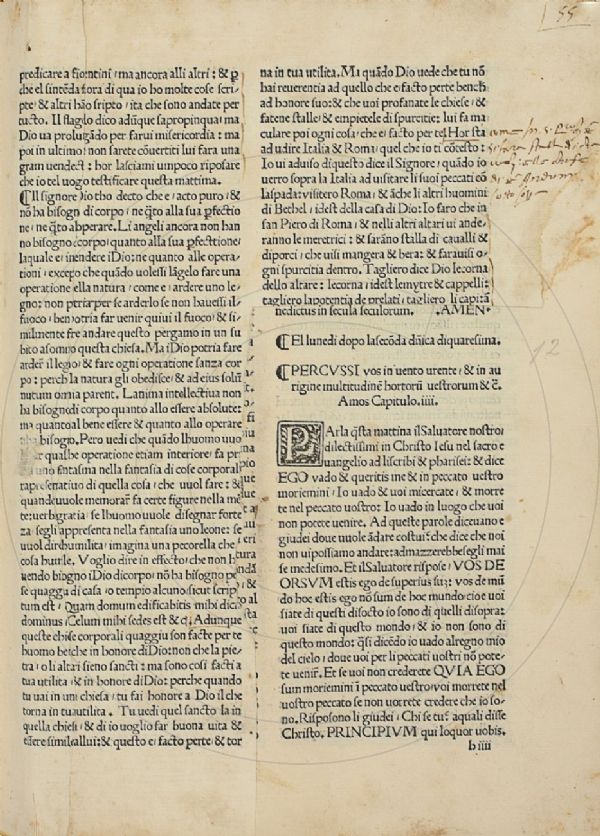 55
predicare a fiorentini, ma ancora alli altri: & ꝑ
che el sintēda fora di qua io ho molte cose scri
pte, & altri hāo scripto, ita che sono andate per
tucto. Il flagilo dico adūque sapropinqua, ma
Dio ua prolugādo per farui misericordia: ma
poi in ultimo, non sarete cōuertiti lui fara una
gram uendect: hor lasciami umpoco riposare
che io tel uogo testificare questa mattina.
Il signore Dio tho decto che e, acto puro, &
nō ha bisogn di corpo, ne q̄to alla sua ꝑfectio
ne, ne q̄to abperare. Li angeli ancora non han
no bisogno: corpo, quanto alla sua ꝑfectione,
laquale e, inendere iDio: ne quanto alle opera
tioni, excepto che quādo uolessi lāgelo fare una
operatione ella natura, come e, ardere uno le
gno: non per se arderlo se non hauessi il
fuoco, ben far uenir quiui il fuoco, & si
milmente fre andare questo pergamo in un su
bito asompo questa chiesa. Ma iDio potria fare
arder il legio, & fare ogni operatione sanza cor
po: perch la natura gli obedisce, & ad eius
nutum omnia parent. Lanima intellectiua non
ha bisogno di corpo quanto allo essere absolute:
ma quantoal bene essere & quanto allo operare
ha bisogno. Pero uedi che quādo lhuomo uuol
far qualche operatione etiam interiore, fa pri
uno fantasma nella fantasia di cose corporali
rapresentatiuo di quella cosa, che uuol fare: &
quando uuole memorar fa certe figure nella mē
te: uerbigratia, se lhuomo uuole disegnar forte
za, segli appresenta nella fantasia uno leone: se
uuol dir humilita, imagina una pecorella che e
cosa humle. Voglio dire in effecto, che non ha
uendo bisogno iDio di corpo, nō ha bisogno pe
se quaggu di casa, o tempio alcuno, sicut scrip
tum est, Quam domum edificabitis mihi dicit
dominus, Celum mihi sedes est & c̄. Adunque
queste chiese corporali quaggiu son facte per te
huomo beiche in honore di Dio: non che la pie
tra, o li altari sieno sancti: ma sono cosi facti a
tua utilita, & in honor di Dio: perche quando
tu uai in una chiesa, tu fai honore a Dio il che
torna in tua utilita. Tu uedi quel sancto la in
quella chiesa, & di io uoglio far buona uita &
essere simile allui: & questo e, facto per te, & tor
na in tua utilita. Ma quādo Dio uede che tu nō
hai reuerentia ad quello che e, facto per te bench
ad honore suo: & che uoi profanate le chiese, &
fatene stalle, & empietele di spurcitie: lui fa ma
culare poi ogni cosa, che e, facto per te. Hor sta
ad udire Italia & Roma, quel che io ti cōtesto:
Io ui aduiso di questo dice il Signore, quādo io
uerro sopra la Italia ad uisitare li suoi peccati cō
la spada: uisitero Roma, & āche li altri huomini
di Bethel, idest della casa di Dio: Io faro che in
san Piero di Roma, & nelli altri altari ui ande-
ranno le meretrici: & sarāno stalla di caualli &
di porci, che uisi mangera & bera: & farauisi o
gni spurcitia dentro. Tagliero dice Dio lecorna
dello altare: lecorna, idest lemytre & cappelli:
tagliero lapotentia de prelati, tagliero li capitā
nedictus in secula seculorum. .AMEN.
El lunedi dopo la secōda dn̄ica di quaresima.
PERCVSSI vos in uento urente, & in au
rigine multitudinē hortorū uestrorum & c̄.
Amos Capitulo. iiii.
PArla q̄sta mattina il Saluatore nostro
dilectissimi in Christo Iesu nel sacro e
uangelio ad li scribi & pharisei: & dice
EGO vado & queritis me & in peccato uestro
moriemini, Io uado & uoi mi cercate, & morre
te nel peccato uostro: Io uado in luogo che uoi
non potete uenire. Ad queste parole diceuano e
giudei doue uuole ādare costui: che dice che noi
non ui possiamo andare: admazzerebbesegli mai
se medesimo. Et il Saluatore rispose, VOS DE
ORSVM estis ego de superius sum: vos de mū
do hoc estis ego nō sum de hoc mundo: cioe uoi
siate di questi disocto io sono di quelli disopra:
uoi siate di questo mondo, & io non sono di
questo mondo: q̄si dicēdo, io uado al regno mio
del cielo, doue uoi per li peccati uostri nō pote-
te uenir. Et se uoi non crederete QVIA EGO
sum moriemini ī peccato uestro, uoi morrete nel
uostro peccato se non uorrete credere che io so-
no. Risposono li giudei, Chi se tu? aquali disse
Christo. PRINCIPIVM qui loquor uobis.
h iiii
12